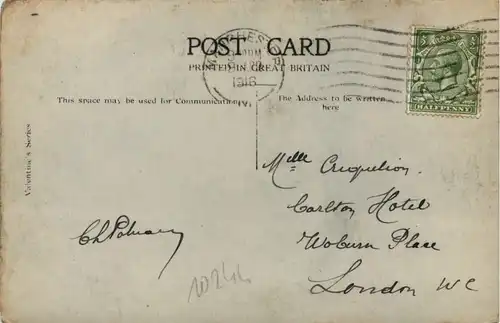 POST CARD
PRINTED IN GREAT BRITAIN
1916
HALFPENNY
This space may be used for Communication
The Address to be written here
Valentine's Series
Melle
Carlton Hotel
Woburn Place
London WC